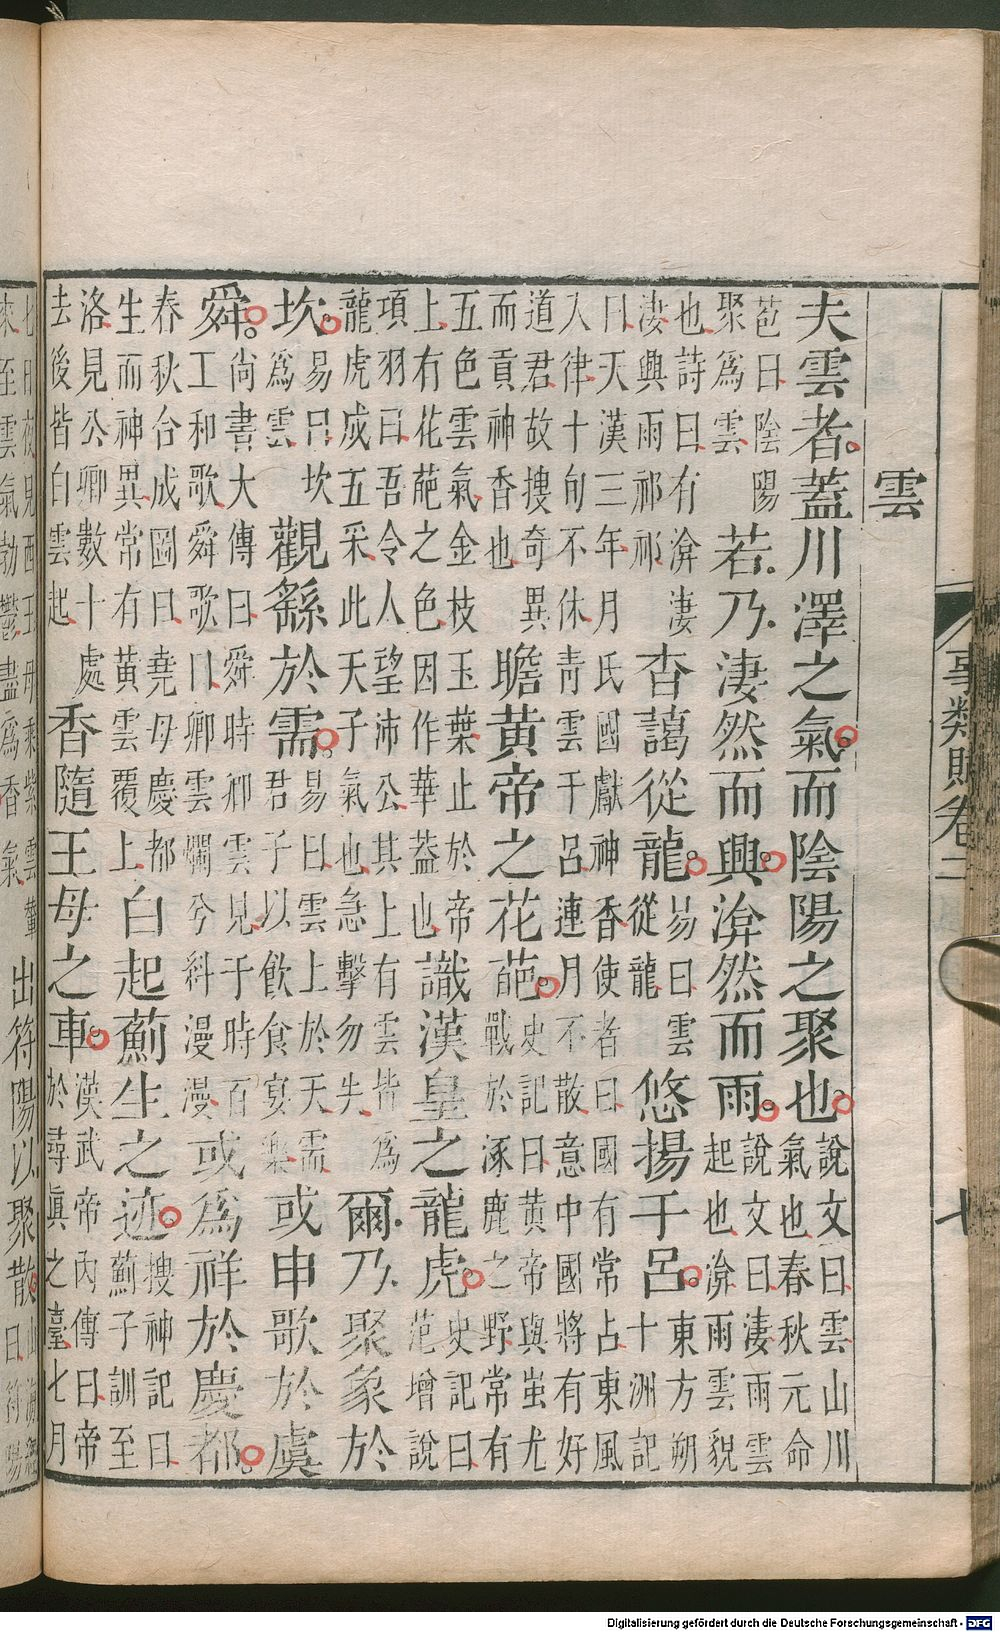 事類賦卷二 七
雲
夫雲者蓋川澤之氣而陰陽之聚也
說文曰雲山川
氣也春秋元命
苞曰陰陽
聚為雲
若乃淒然而興渰然而雨
說文曰淒雨雲
起也渰雨雲貌
也詩曰有渰淒
淒興雨祁祁
杳藹從龍
易曰雲
從龍
悠揚干呂
東方朔
十洲記
曰天漢三年月氏國獻神香使者曰國有常占東風
入律十旬不休青雲干呂連月不散意中國將有好
道君故搜奇異
而貢神香也
瞻黃帝之花葩
史記曰黃帝與蚩尤
戰於涿鹿之野常有
五色雲氣金枝玉葉止於帝
上有花葩之色因作華蓋也
識漢皇之龍虎
史記曰
范增說
項羽曰吾令人望沛公其上有雲皆為
龍虎成五采此天子氣也急擊勿失
爾乃聚象於
坎
易曰坎
為雲
觀繇於需
易曰雲上於天需
君子以飲食宴樂
或申歌於虞
舜
尚書大傳曰舜時卿雲見于時百
工和歌舜歌曰卿雲爛兮糾漫漫
或為祥於慶都
春秋合成圖曰堯母慶都
生而神異常有黃雲覆上
白起薊生之迹
搜神記曰
薊子訓至
洛見公卿數十處
去後皆白雲起
香隨王母之車
漢武帝內傳曰帝
於尋真之臺七月
七日夜見西王母乘紫雲輦
來至雲氣勃鬱盡為香氣
出符陽以聚散
山海經
曰符陽
Digitalisierung gefördert durch die Deutsche Forschungsgemeinschaft - DFG